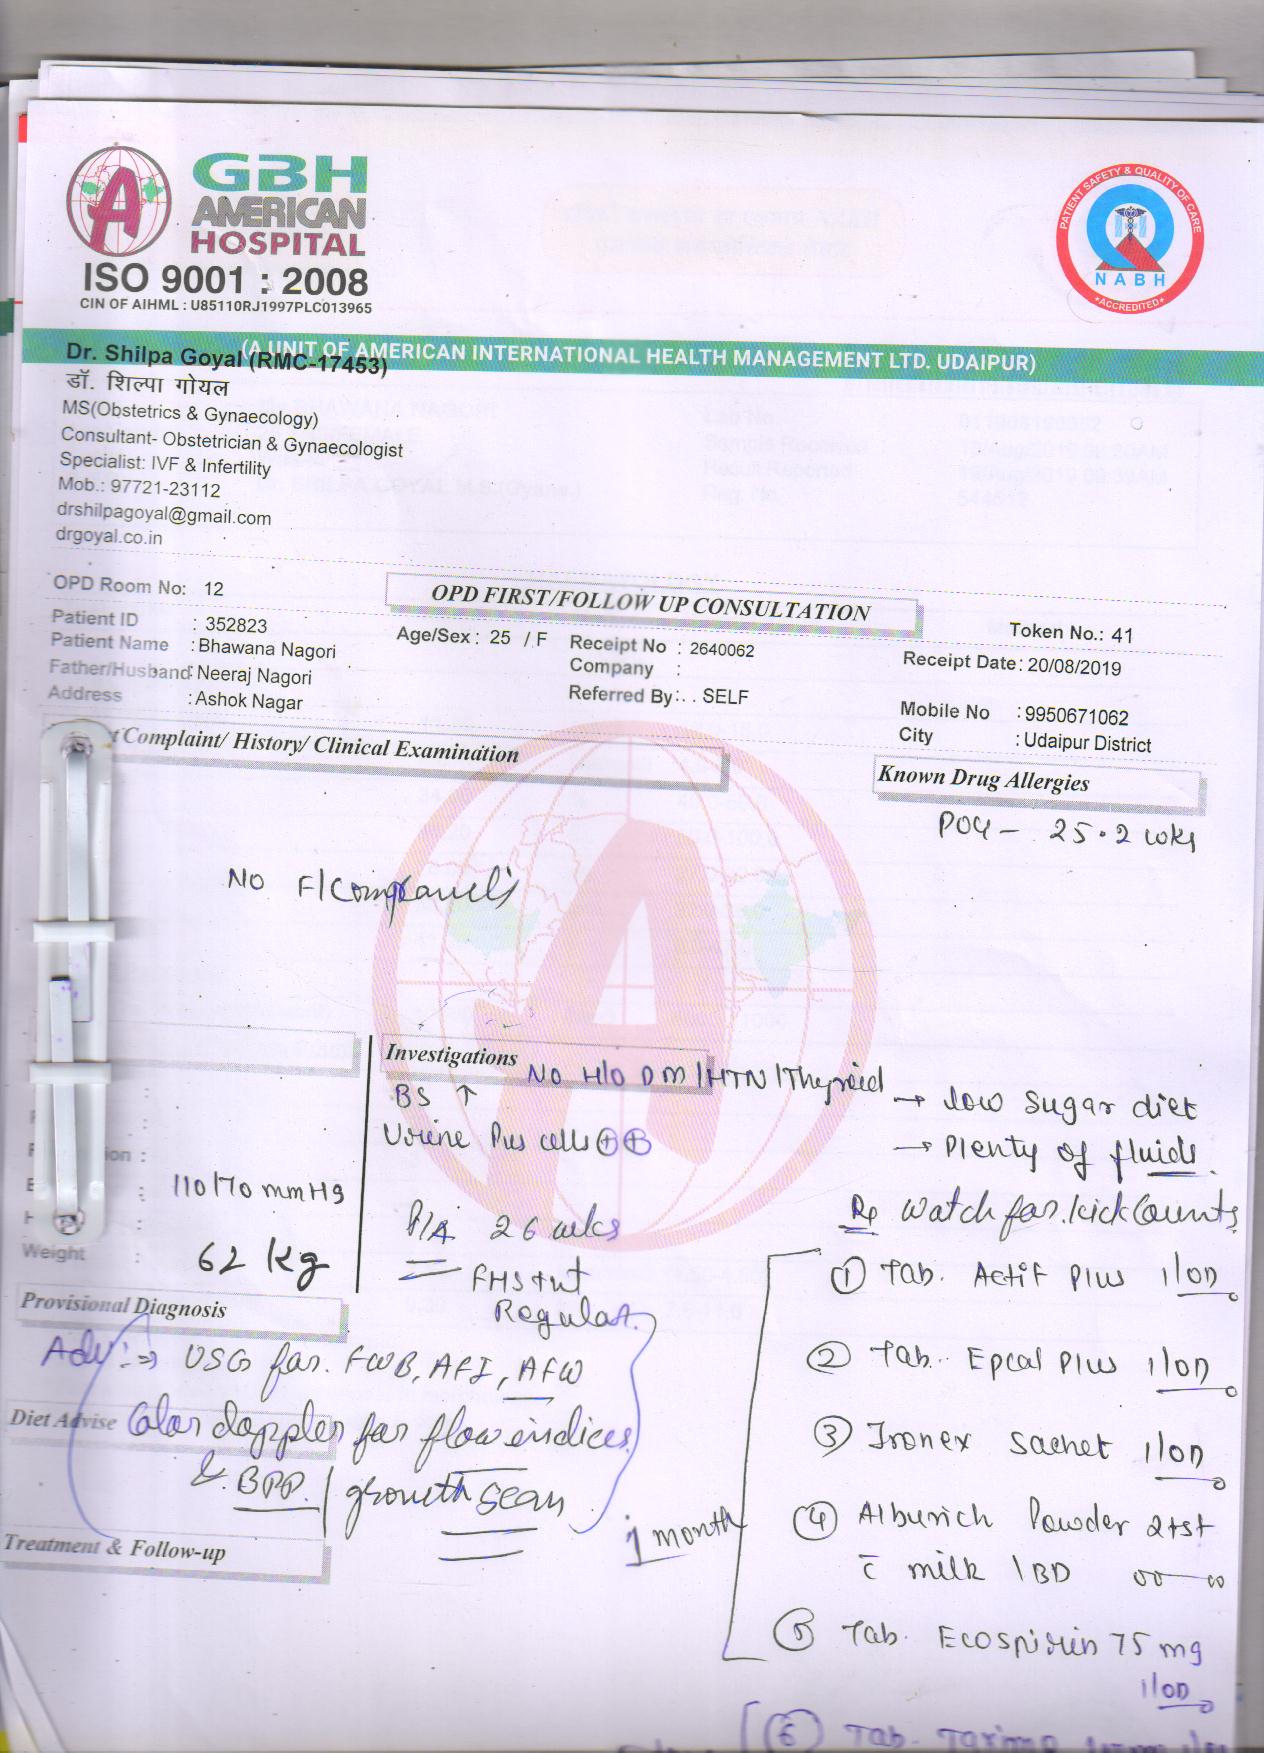 GBH
AMERICAN
HOSPITAL
ISO 9001 : 2008
CIN OF AIHML : U85110RJ1997PLC013965
PATIENT SAFETY & QUALITY OF CARE
NABH
ACCREDITED
(A UNIT OF AMERICAN INTERNATIONAL HEALTH MANAGEMENT LTD. UDAIPUR)
Dr. Shilpa Goyal (RMC-17453)
डॉ. शिल्पा गोयल
MS(Obstetrics & Gynaecology)
Consultant- Obstetrician & Gynaecologist
Specialist: IVF & Infertility
Mob.: 97721-23112
drshilpagoyal@gmail.com
drgoyal.co.in
OPD Room No: 12
OPD FIRST/FOLLOW UP CONSULTATION
Token No.: 41
Patient ID : 352823
Patient Name : Bhawana Nagori
Father/Husband: Neeraj Nagori
Address : Ashok Nagar
Age/Sex : 25 / F
Receipt No : 2640062
Company :
Referred By: . . SELF
Receipt Date: 20/08/2019
Mobile No : 9950671062
City : Udaipur District
Complaint/ History/ Clinical Examination
Known Drug Allergies
POG - 25.2 wks
No F/Complaints
Investigations
No H/O DM/HTN/Thyroid
BS ↑
Urine Pus cells ⊕⊕
→ low sugar diet
→ Plenty of fluids.
110/70 mmHg
Weight : 62 kg
P/A 26 wks
FHS +nt
Regular.
Rx Watch for kick Counts
① Tab. Actif Plus 1 OD
② Tab. Epcal Plus 1 OD
③ Ironex Sachet 1 OD
④ Alburich Powder 2tsf
c̄ milk 1 BD
⑤ Tab. Ecospirin 75 mg
1 OD
1 month
⑥ Tab.
Provisional Diagnosis
Adv :⇒ USG for. FWB, AFI, AFW
Diet Advise
Color doppler for flow indices
& BPP / growth scan
Treatment & Follow-up